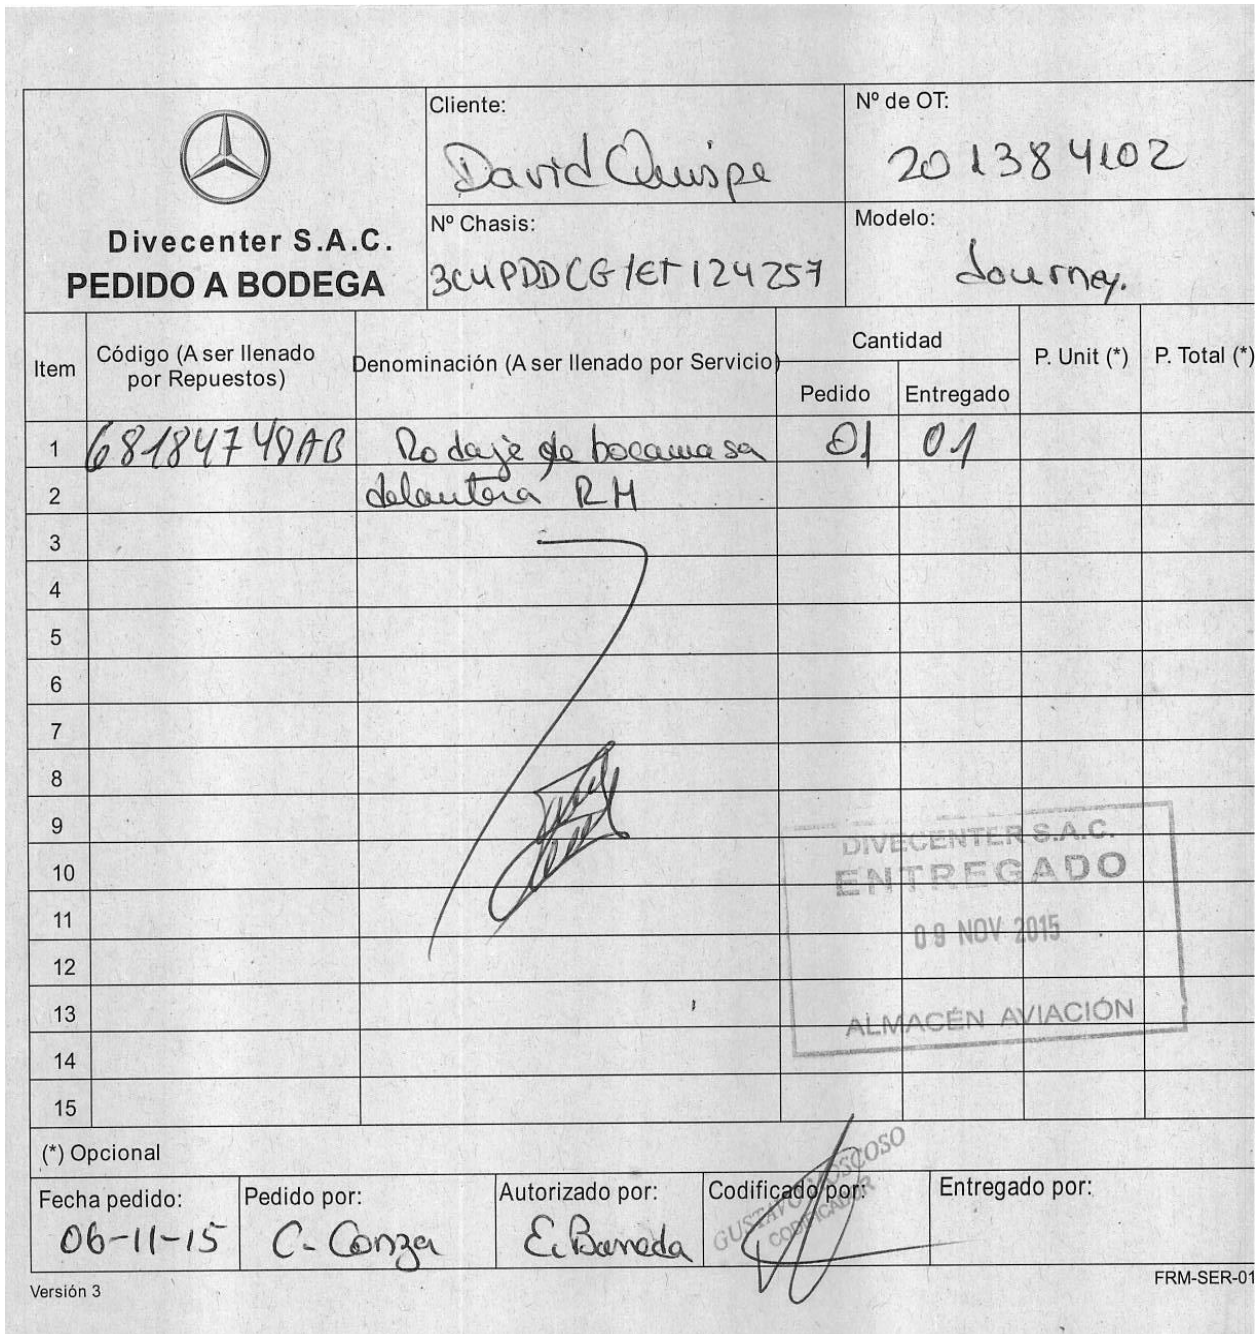 Cliente:
David Quispe
Nº de OT:
201384102
Divecenter S.A.C.
PEDIDO A BODEGA
Nº Chasis:
3CUPDDCG1ET124257
Modelo:
Journey.
Item
Código (A ser llenado
por Repuestos)
Denominación (A ser llenado por Servicio)
Cantidad
Pedido
Entregado
P. Unit (*)
P. Total (*)
1 68184748AB Rodaje de bocamasa 01 01
2 delantera RH
3
4
5
6
7
8
9
10
11
12
13
14
15
DIVECENTER S.A.C.
ENTREGADO
09 NOV 2015
ALMACÉN AVIACIÓN
(*) Opcional
Fecha pedido:
06-11-15
Pedido por:
C. Conza
Autorizado por:
E. Baneda
Codificado por:
GUSTAVO MOSCOSO
CODIFICADOR
Entregado por:
Versión 3
FRM-SER-01